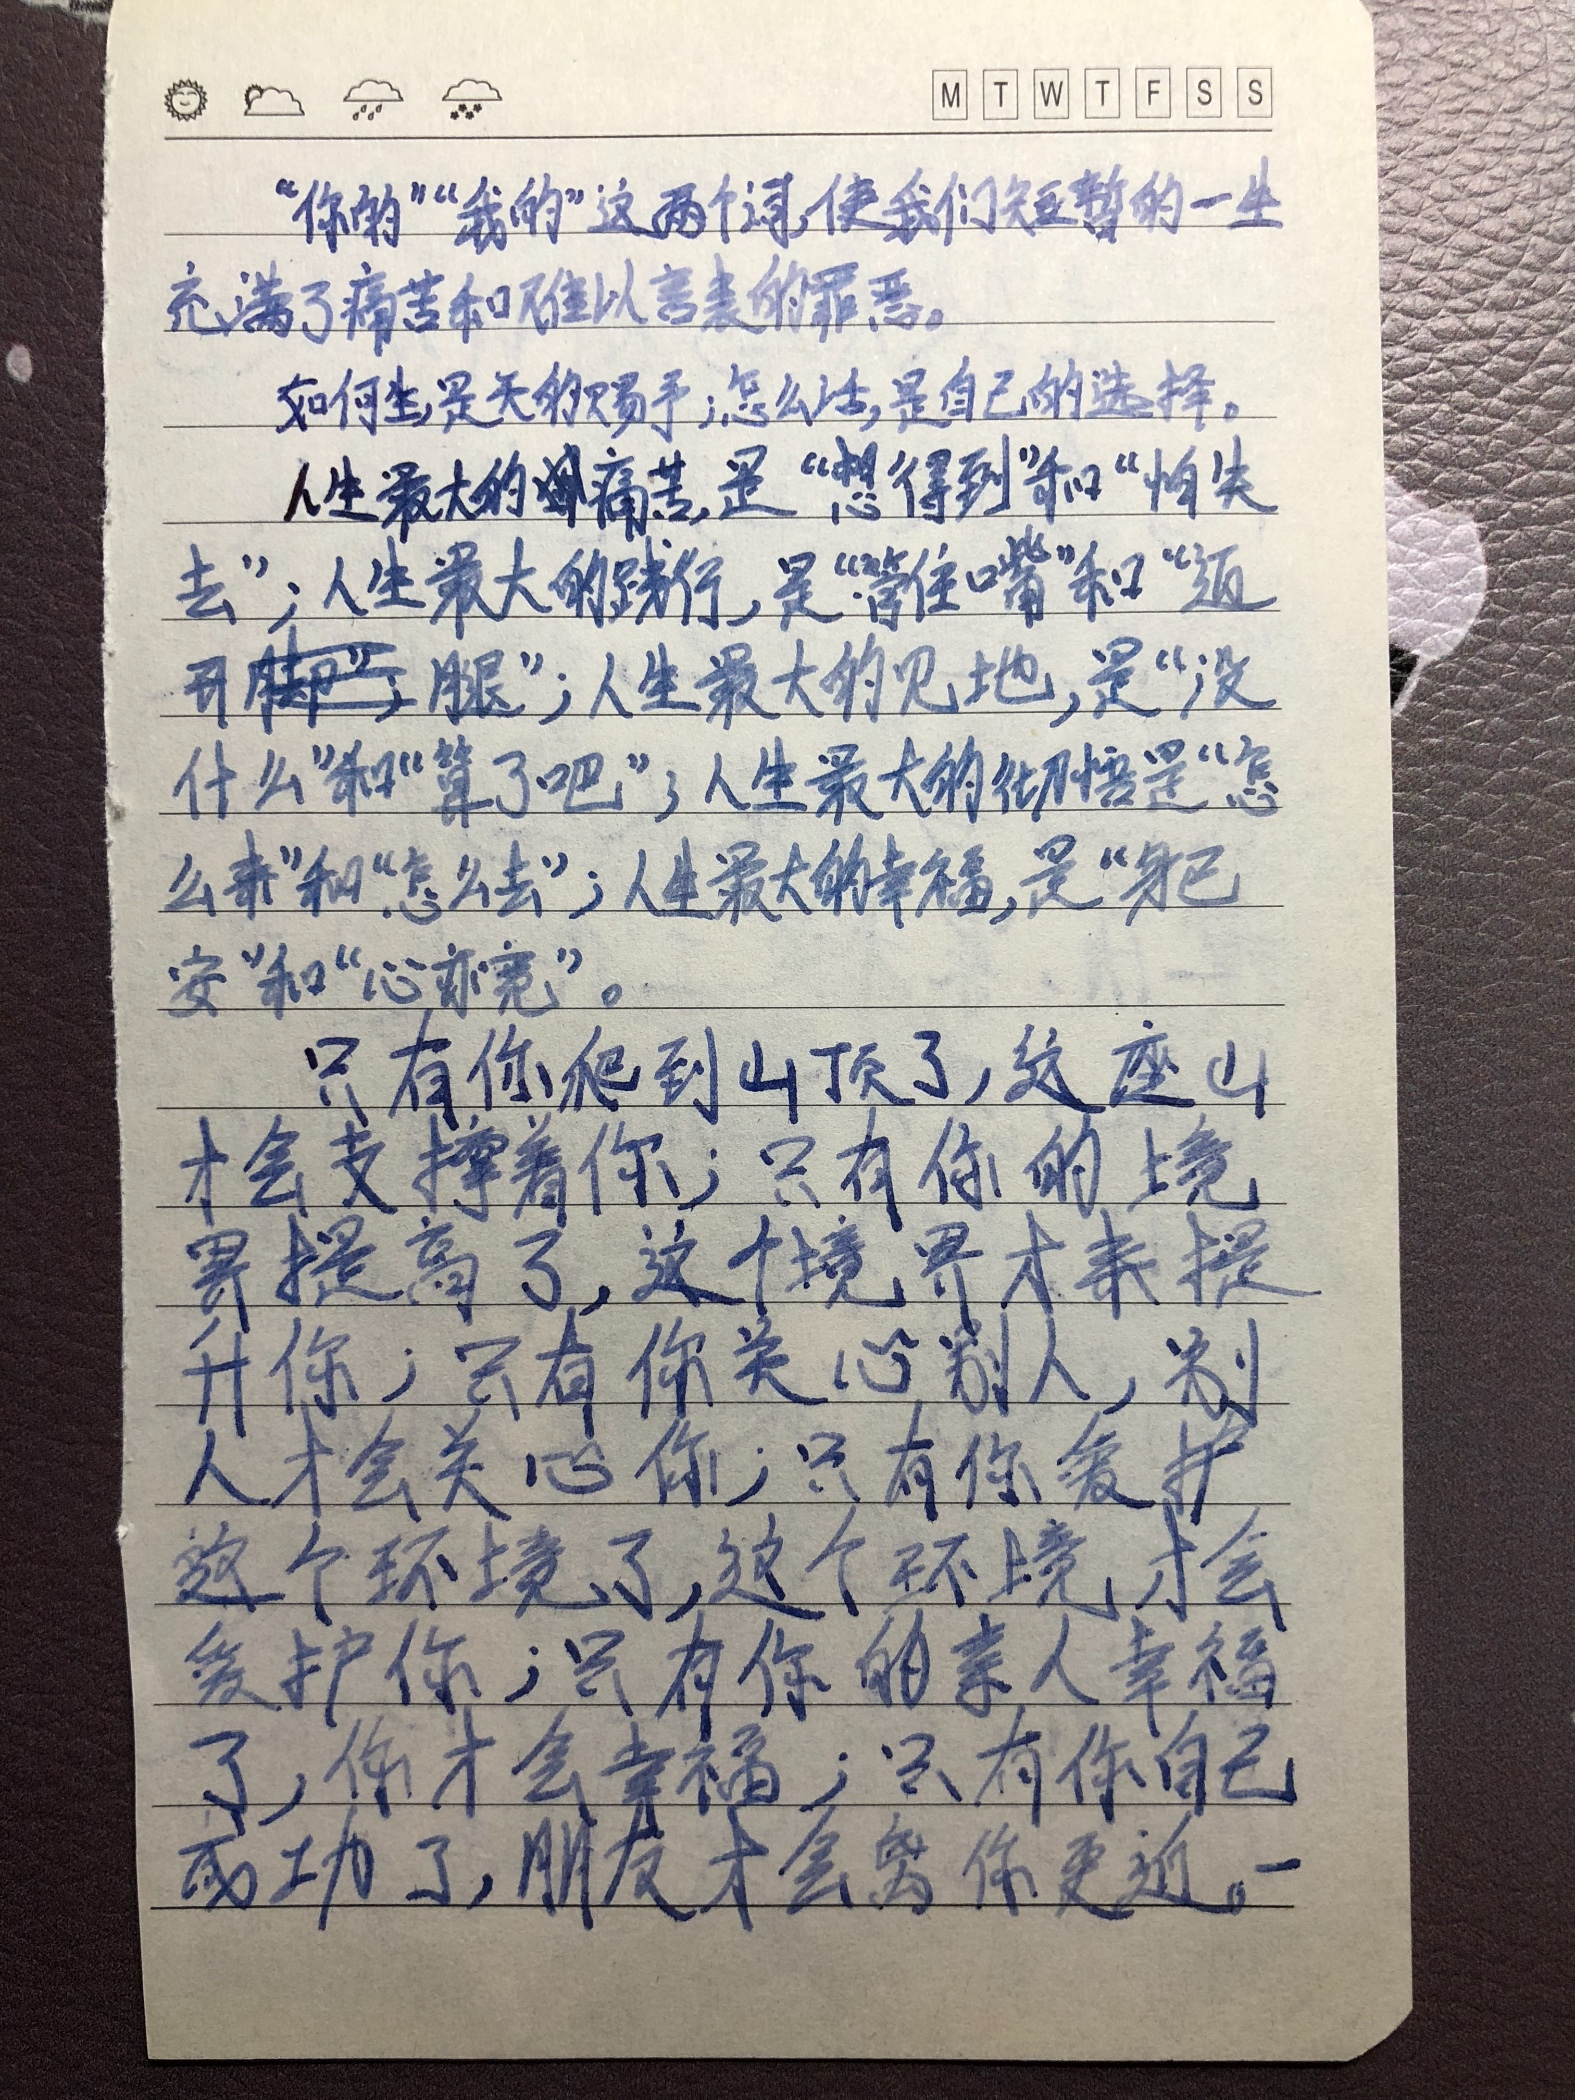 M T W T F S S
“你的”“我的”这两个词,使我们短暂的一生
充满了痛苦和难以言表的罪恶。
如何生,是天的赐予;怎么活,是自己的选择。
人生最大的痛苦,是“想得到”和“怕失
去”;人生最大的践行,是“管住嘴”和“迈
开脚”;腿”;人生最大的见地,是“没
什么”和“算了吧”;人生最大的彻悟是“怎
么来”和“怎么去”;人生最大的幸福,是“身已
安”和“心亦宽”。
只有你爬到山顶了,这座山
才会支撑着你;只有你的境
界提高了,这个境界才来提
升你;只有你关心别人,别
人才会关心你;只有你爱护
这个环境了,这个环境才会
爱护你;只有你的亲人幸福
了,你才会幸福;只有你自己
成功了,朋友才会离你更近。一